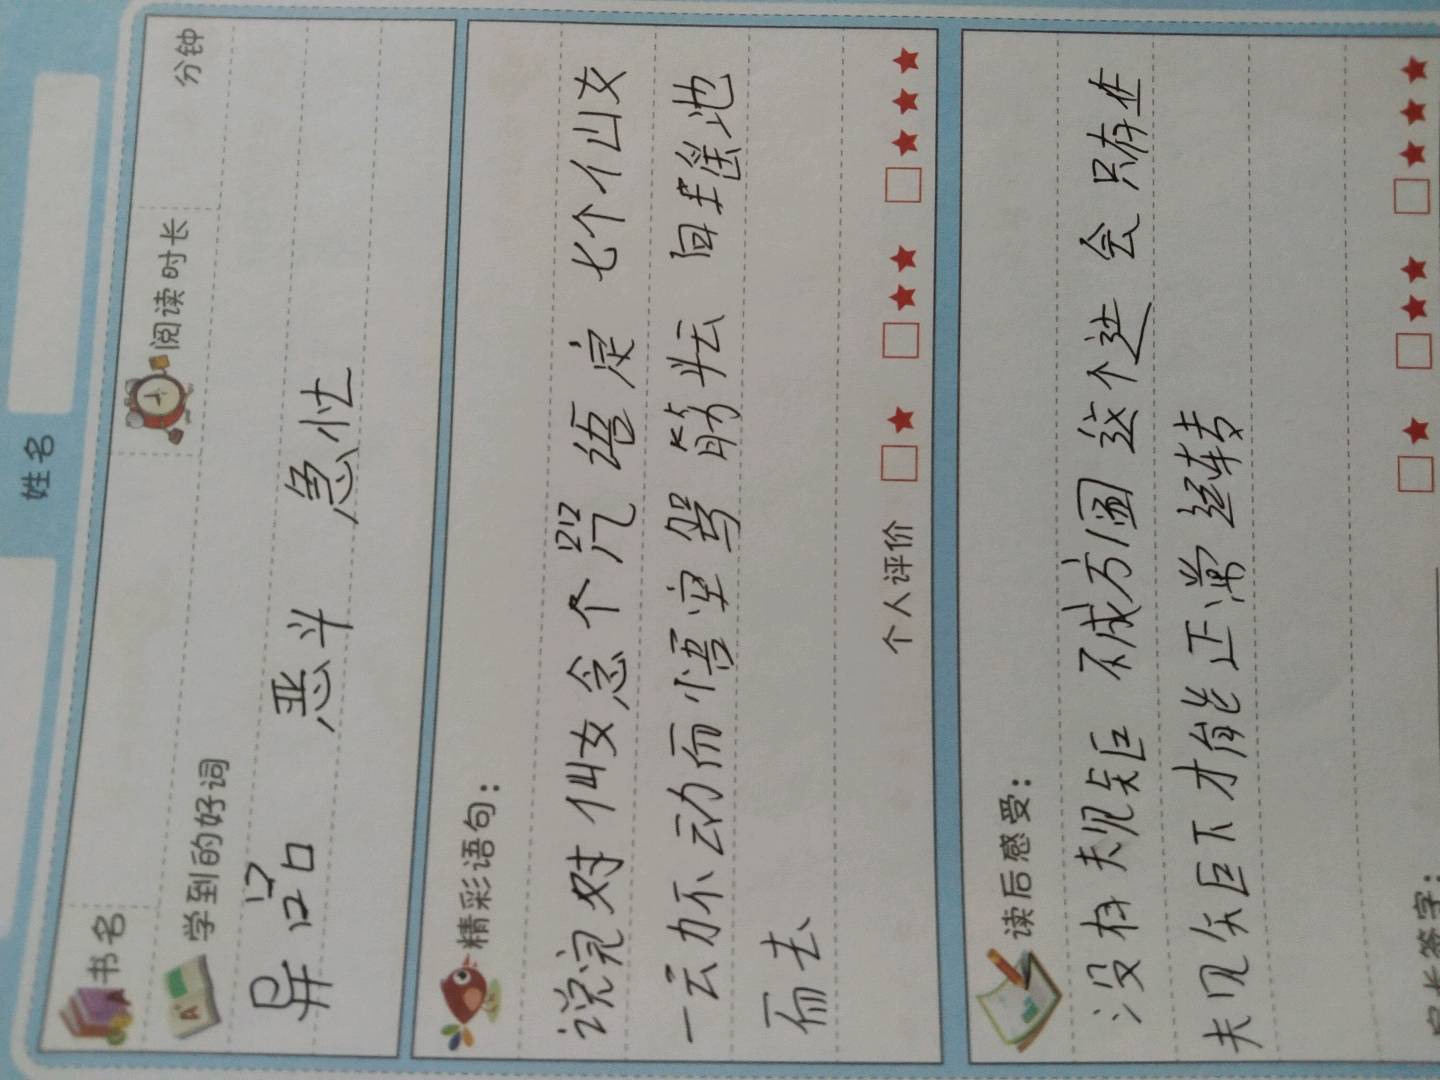 姓名
书名 阅读时长 分钟
学到的好词
异 尝 恶斗 急忙
精彩语句：
说完对仙女念个咒语定七个仙女
一动不动而悟空驾筋云向瑶池
而去
个人评价
读后感受：
没有规矩不成方圆这个 会只存在
规矩下才能正常运转
家长签字：